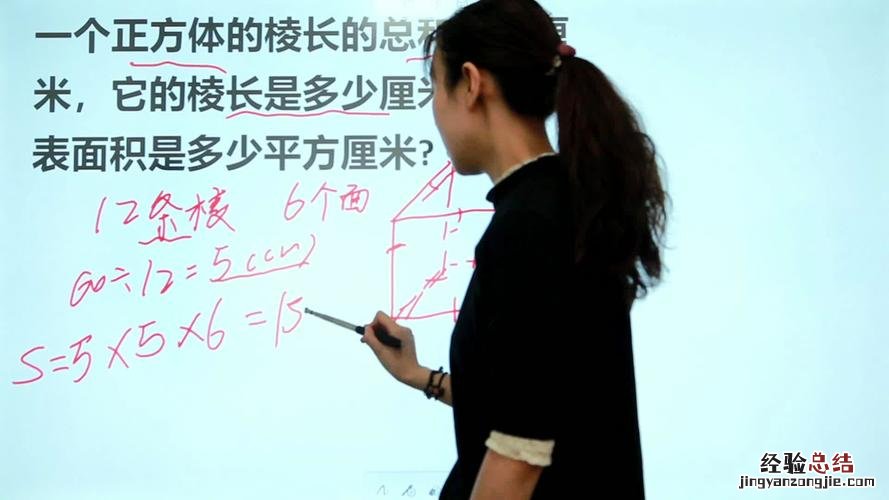 一个正方体的棱长的总
米，它的棱长是多少厘米
表面积是多少平方厘米?
12条棱 6个面
60÷12=5(cm)
S=5×5×6=15
经验总结
jingyanzongjie.com